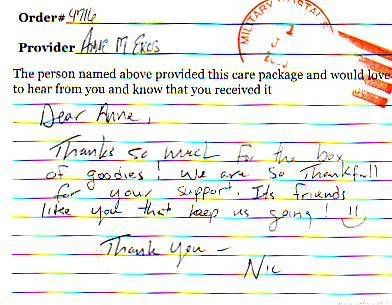 Order# 4716
MILITARY POSTAL
Provider Anne M Eros
The person named above provided this care package and would love
to hear from you and know that you received it
Dear Anne,
Thanks so much for the box
of goodies! We are so Thankfull
for your support. Its friends
like you that keep us going! !!
Thank you –
Nic